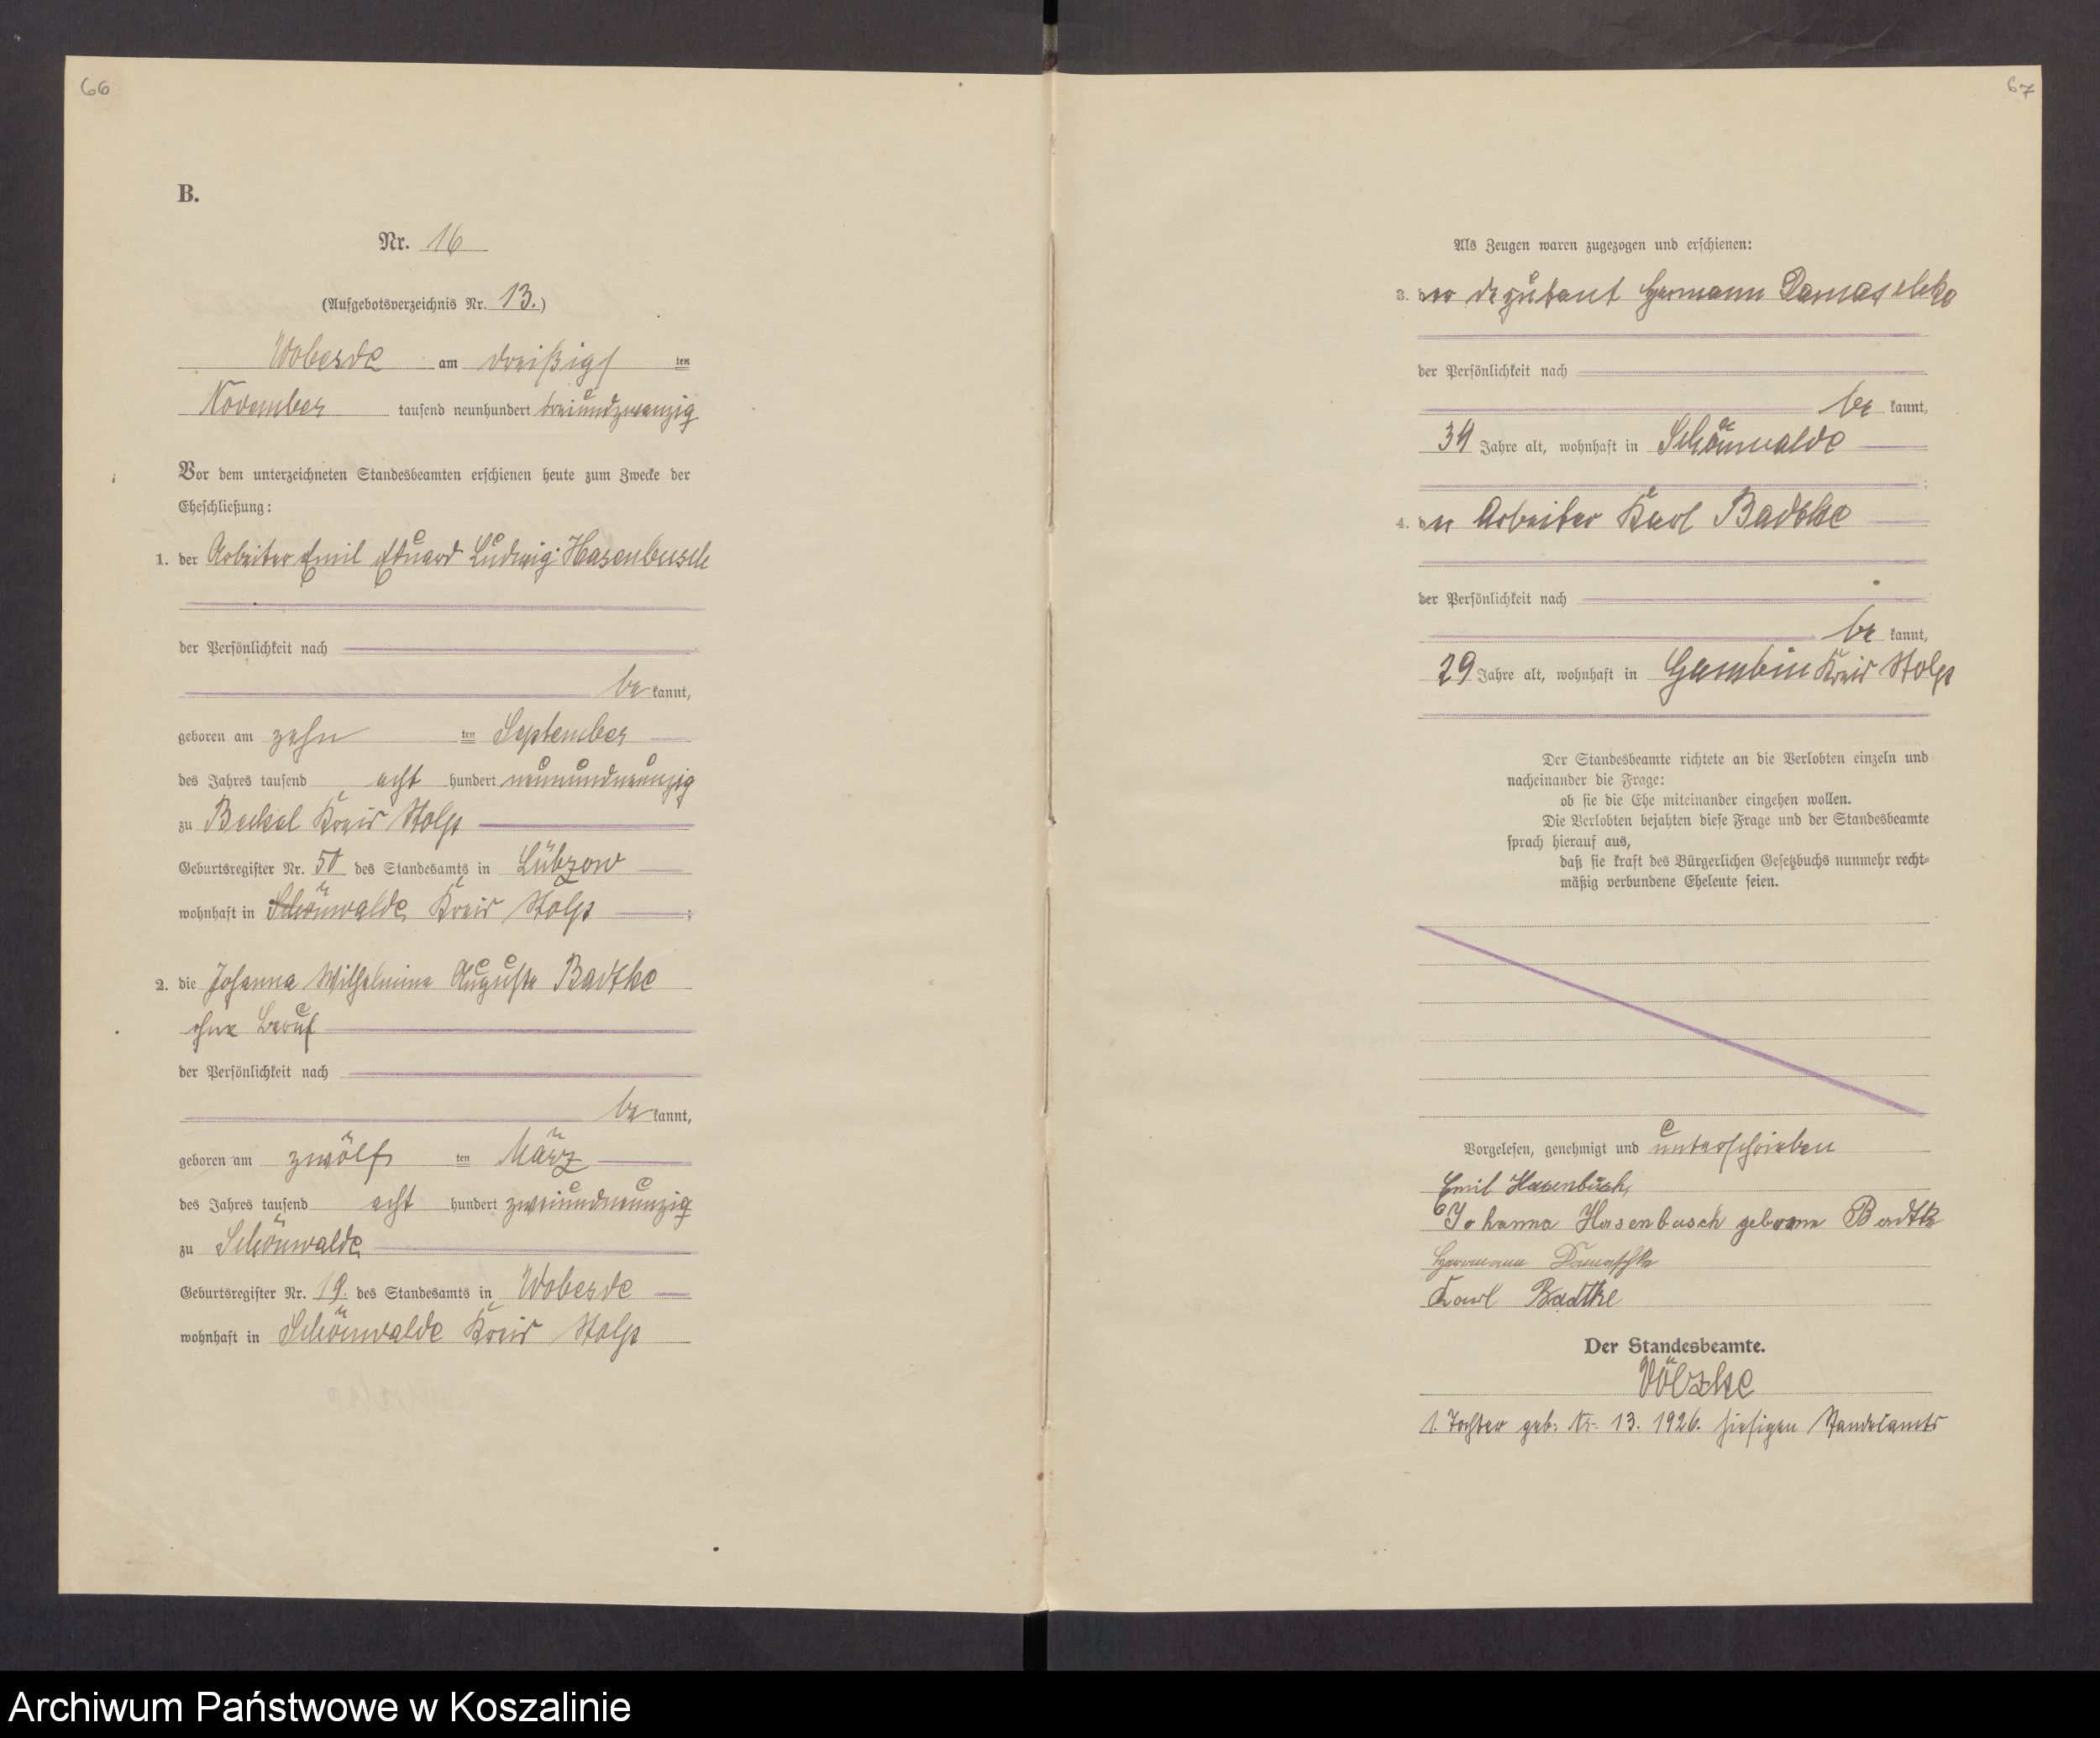 66
B.
Nr. 16
(Aufgebotsverzeichnis Nr. 13.)
Wobesde am dreißigs ten
November tausend neunhundert dreiundzwanzig
Vor dem unterzeichneten Standesbeamten erschienen heute zum Zwecke der
Eheschließung:
1. der Arbeiter Emil Eduard Ludwig Hasenbusch
der Persönlichkeit nach
be kannt,
geboren am zehn ten September
des Jahres tausend acht hundert neunundneunzig
zu Beckel Kreis Stolp
Geburtsregister Nr. 50 des Standesamts in Lübzow
wohnhaft in Schönwalde Kreis Stolp ;
2. die Johanna Wilhelmine Auguste Badtke
ohne Beruf
der Persönlichkeit nach
be kannt,
geboren am zwölf ten März
des Jahres tausend acht hundert zweiundneunzig
zu Schönwalde
Geburtsregister Nr. 19. des Standesamts in Wobesde
wohnhaft in Schönwalde Kreis Stolp
67
Als Zeugen waren zugezogen und erschienen:
3. der Deputant Hermann Damaschke
der Persönlichkeit nach
be kannt,
34 Jahre alt, wohnhaft in Schönwalde
;
4. Arbeiter Karl Badtke
der Persönlichkeit nach
be kannt,
29 Jahre alt, wohnhaft in Gambin Kreis Stolp
Der Standesbeamte richtete an die Verlobten einzeln und
nacheinander die Frage:
ob sie die Ehe miteinander eingehen wollen.
Die Verlobten bejahten diese Frage und der Standesbeamte
sprach hierauf aus,
daß sie kraft des Bürgerlichen Gesetzbuchs nunmehr recht-
mäßig verbundene Eheleute seien.
Vorgelesen, genehmigt und unterschrieben
Emil Hasenbusch,
Johanna Hasenbusch geborene Badtke
Hermann Damaschke
Karl Badtke
Der Standesbeamte.
Völzke
1. Tochter geb: Nr. 13. 1926. hiesigen Standesamts
Archiwum Państwowe w Koszalinie